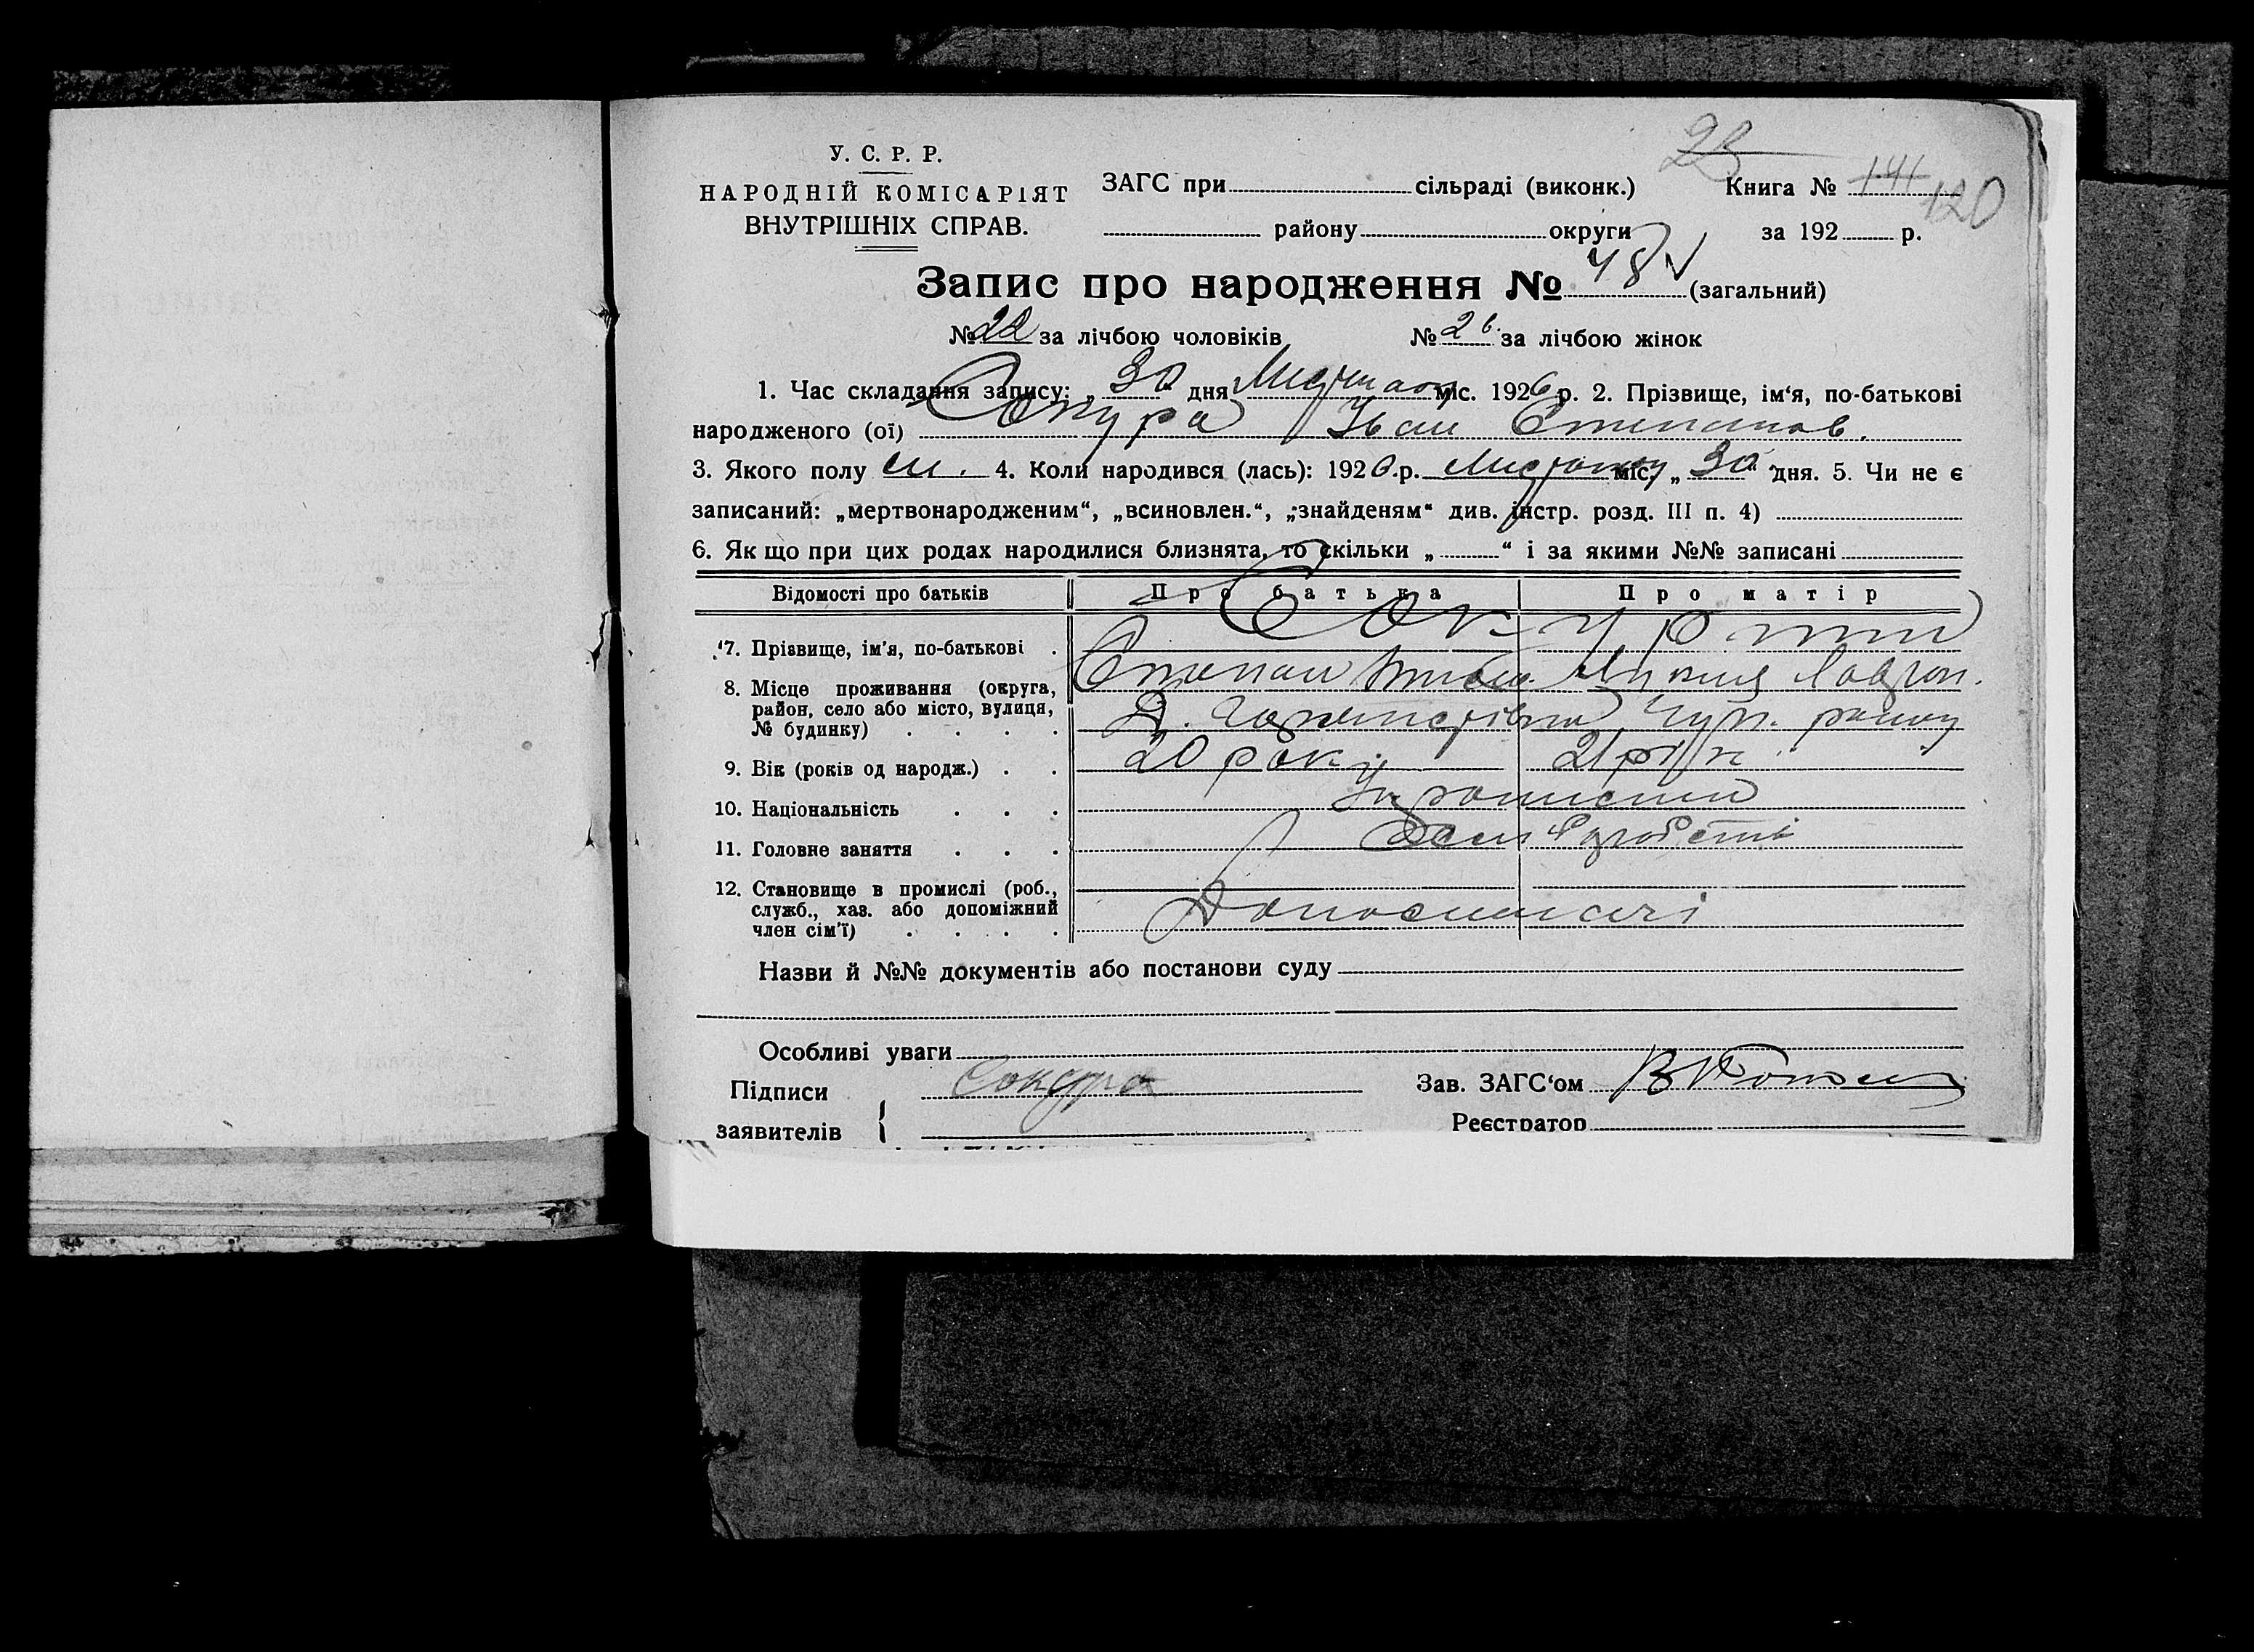 23
У. С. Р. Р.
НАРОДНІЙ КОМІСАРІЯТ
ВНУТРІШНІХ СПРАВ.
ЗАГС при сільраді (виконк.) Книга № 141 120
району округи за 192 р.
Запис про народження № 48 (загальний)
№ 22 за лічбою чоловіків № 26. за лічбою жінок
1. Час складання запису: „ 30 дня міс. 1926 р. 2. Прізвище, ім‘я, по-батькові
народженого (ої) Сокура Іван Степанов.
3. Якого полу 4. Коли народився (лась): 1926.р. міс. „ 30 “ дня. 5. Чи не є
записаний: „мертвонародженим“, „всиновлен.“, „знайденям“ див. інстр. розд. III п. 4)
6. Як що при цих родах народилися близнята, то скільки „ “ і за якими №№ записані
Відомості про батьків Про батька Про матір
7. Прізвище, ім‘я, по-батькові Сокура
Степан
8. Місце проживання (округа,
район, село або місто, вулиця,
№ будинку)
9. Вік (років од народж.) 20 років 21 рік
10. Національність
11. Головне заняття
12. Становище в промислі (роб.,
служб., хаз. або допоміжний
член сім‘ї)
Назви й №№ документів або постанови суду
Особливі уваги
Підписи Сокура Зав. ЗАГС‘ом
заявителів Реєстратор